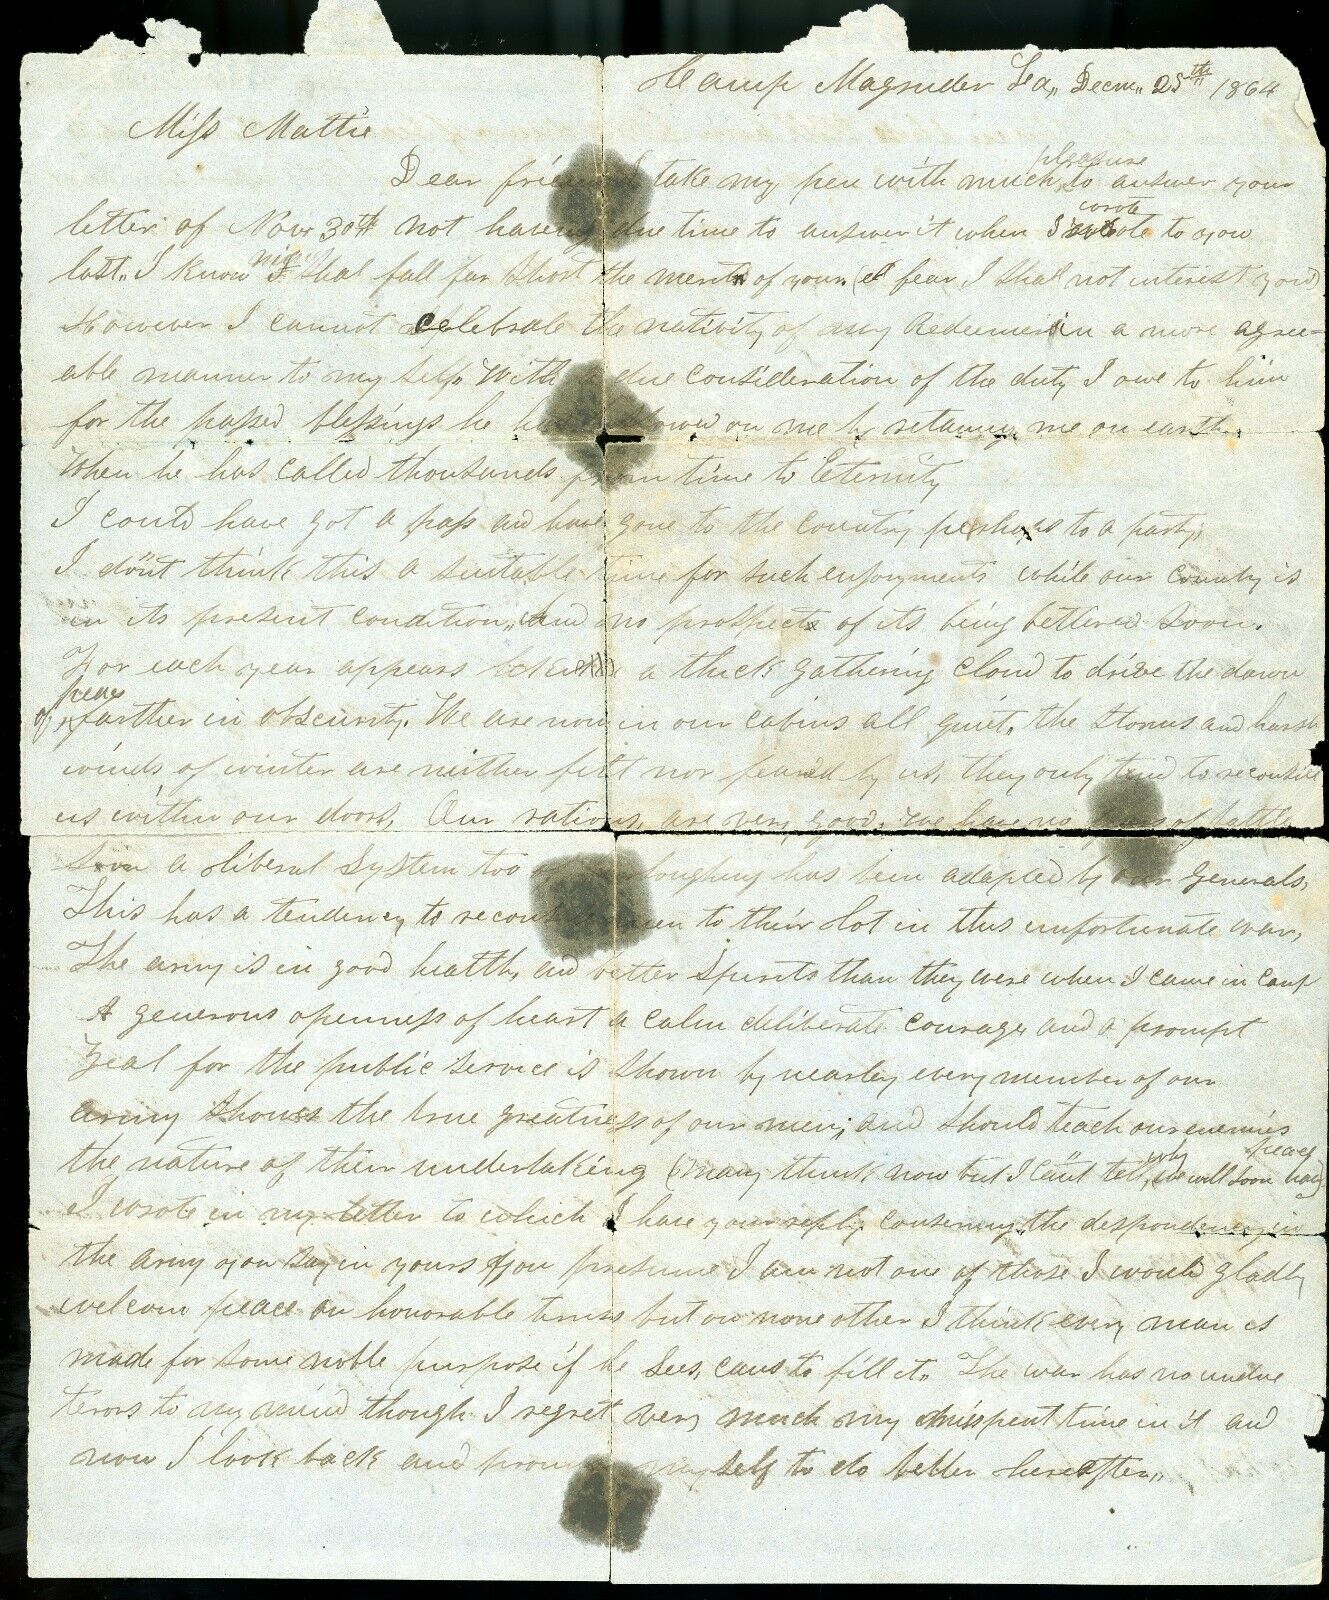 Camp Magruder La,, Decm,, 25th 1864
Miss Mattie
Dear friend I take my pen with much pleasure to answer your
letter of Nov 30th not having due time to answer it when I wrote to you
last,, I know I shal fall far short the merit of your, (& fear I shal not interest you)
However I cannot celebrate the nativity of my Redeemer in a more agree=
able manner to my self. With a due consideration of the duty I owe to him
for the passed blessings he has on me by retaining me on earth,
When he has called thousands from time to Eternity
I could have got a pass and have gone to the country perhaps to a party,
I don't think this a suitable time for such enjoyments while our country is
in its present condition,, and no prospects of its being bettered soon.
For each year appears a thick gathering cloud to drive the dawn
of peace farther in obscurity. We are now in our cabins all quiet,, the storms and harsh
winds of winter are neither felt nor feared by us, they only tend to reconsile
us within our doors, Our rations, are very good. we have no of battle
soon a liberal System too of has been adapted by our Generals,
This has a tendency to reconsile men to their lot in this unfortunate war,
The army is in good health, and better Spirits than they were when I came in camp
A generous openness of heart a calm deliberate courage and a prompt
Zeal for the public service is shown by nearley every member of our
army shows the true greatness of our men; and should teach our enemies
the nature of their undertaking (many think now but I can't tell why, we will soon have peace)
I wrote in my letter to which I have your reply conserning the despondency in
the army you say in yours you presume I am not one of those I would gladly
welcom peace on honorable terms but on none other I think every man is
made for some noble purpose if he sees, caus to fill it,, The war has no undue
terors to my mind though I regret very much my misspent time in it and
now I look back and promis my self to do better hereafter,,